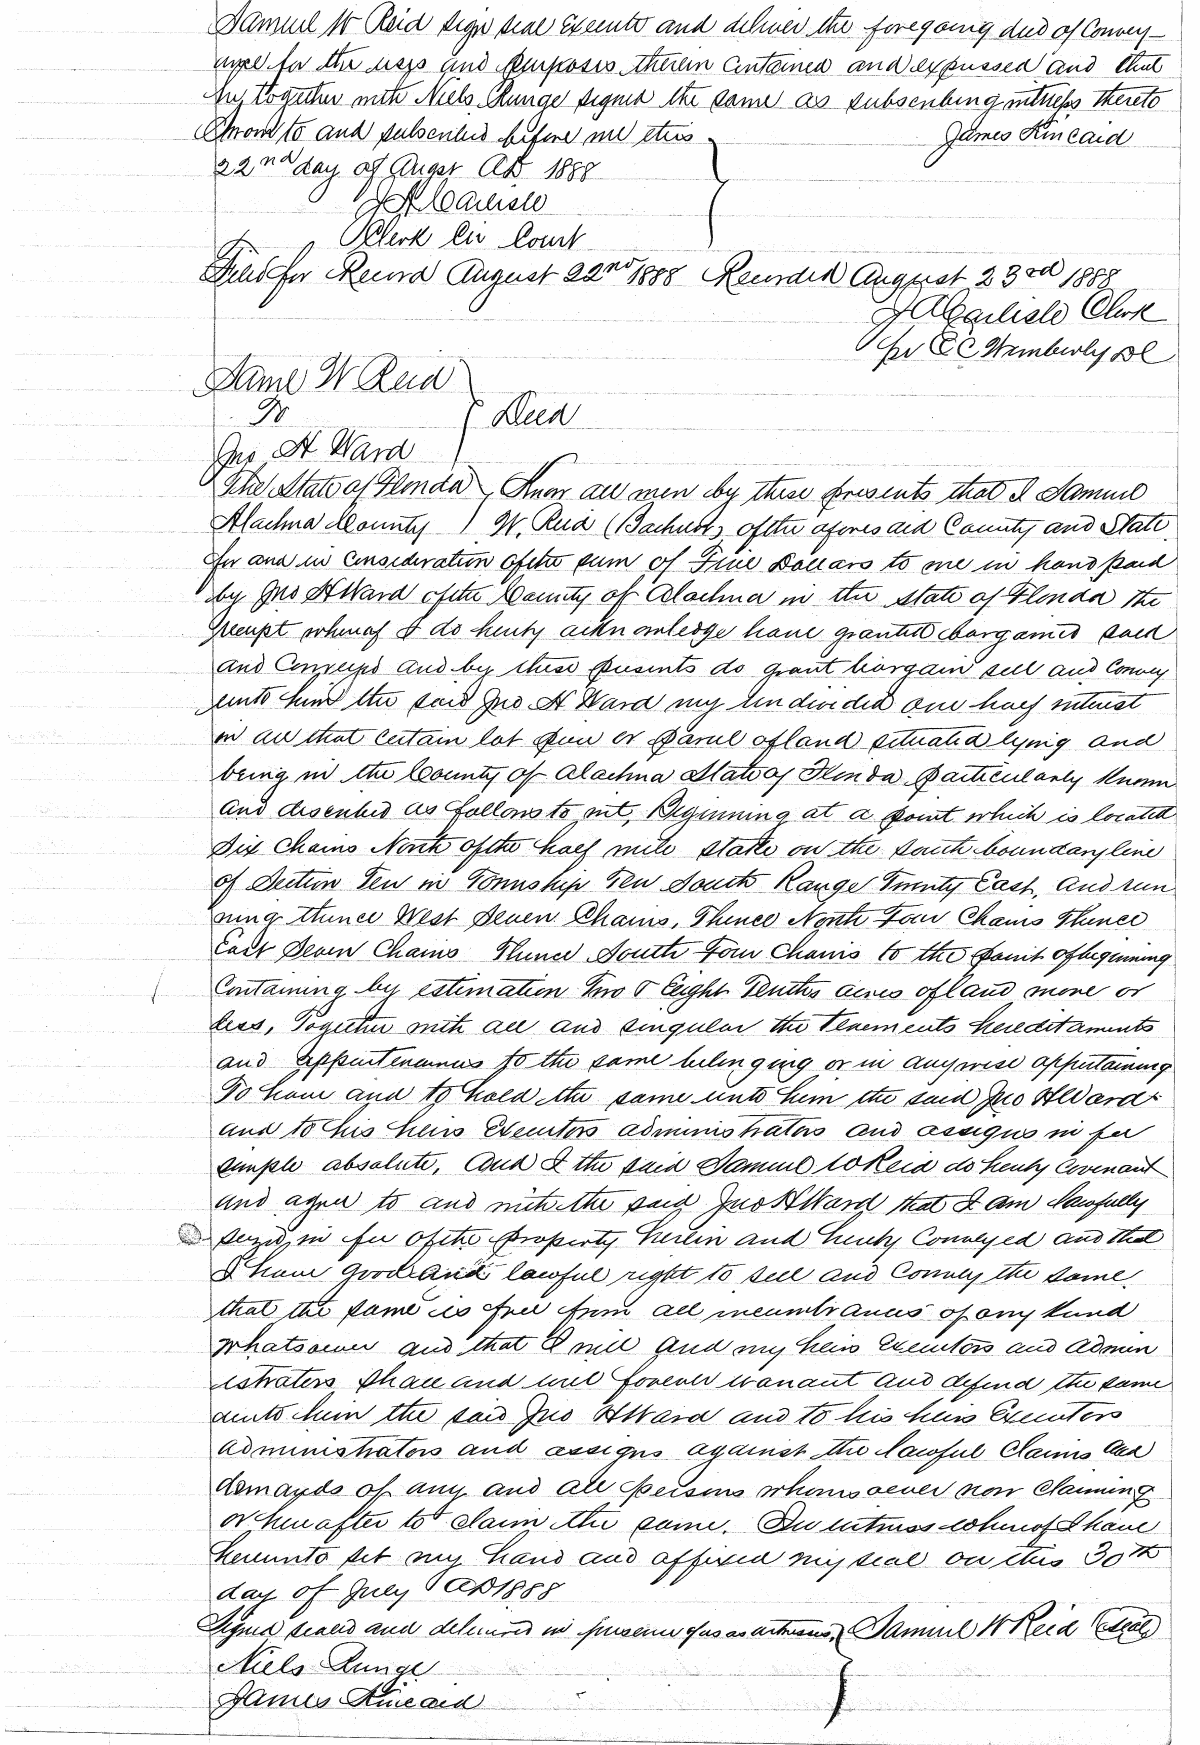 Samuel W Reid sign seal Execute and deliver the foregoing deed of Convey-
ance for the uses and purposes therein Contained and expressed and that
he together with Niels Runge signed the same as subscribing witness thereto
Sworn to and subscribed before me this James Kincaid
22nd day of Augst AD 1888
J A Carlisle
Clerk Cir Court
Filed for Record August 22nd 1888 Recorded August 23rd 1888
J A Carlisle Clerk
per E C Wimberly DC
Saml W Reid
To } Deed
Jno H Ward
The State of Florida } Know all men by these presents that I Samuel
Alachua County } W. Reid (Bachelor) of the aforesaid County and State
for and in Consideration of the sum of Five Dollars to me in hand paid
by Jno H Ward of the County of Alachua in the State of Florida the
receipt whereof I do hereby acknowledge have granted bargained sold
and Conveyed and by these presents do grant bargain sell and Convey
unto him the said Jno H Ward my undivided one half interest
in all that certain lot piece or parcel of land situated lying and
being in the County of Alachua State of Florida particularly known
and described as follows to wit, Beginning at a point which is located
Six Chains North of the half mile stake on the south boundary line
of Section Ten in Township Ten South Range Twenty East, and run
ning thence West Seven Chains, Thence North Four Chains Thence
East Seven Chains Thence South Four Chains to the point of beginning
Containing by estimation Two & Eight Tenths acres of land more or
less, Together with all and singular the Tenements hereditaments
and appurtenances to the same belonging or in anywise appertaining
To have and to hold the same unto him the said Jno H Ward
and to his heirs Executors administrators and assigns in fee
simple absolute, And I the said Samuel W Reid do hereby Covenant
and agree to and with the said Jno H Ward that I am lawfully
seized in fee of the property herein and hereby Conveyed and that
I have good and lawful right to sell and Convey the same,
that the same is free from all incumbrances of any kind
whatsoever and that I will and my heirs Executors and admin
istrators shall and will forever warrant and defend the same
unto him the said Jno H Ward and to his heirs Executors
administrators and assigns against the lawful Claims and
demands of any and all persons whomsoever now Claiming
or hereafter to claim the same. In witness whereof I have
hereunto set my hand and affixed my seal on this 30th
day of July AD 1888
Signed sealed and delivered in presence of us as witnesses, } Samuel W Reid (seal)
Niels Runge
James Kincaid